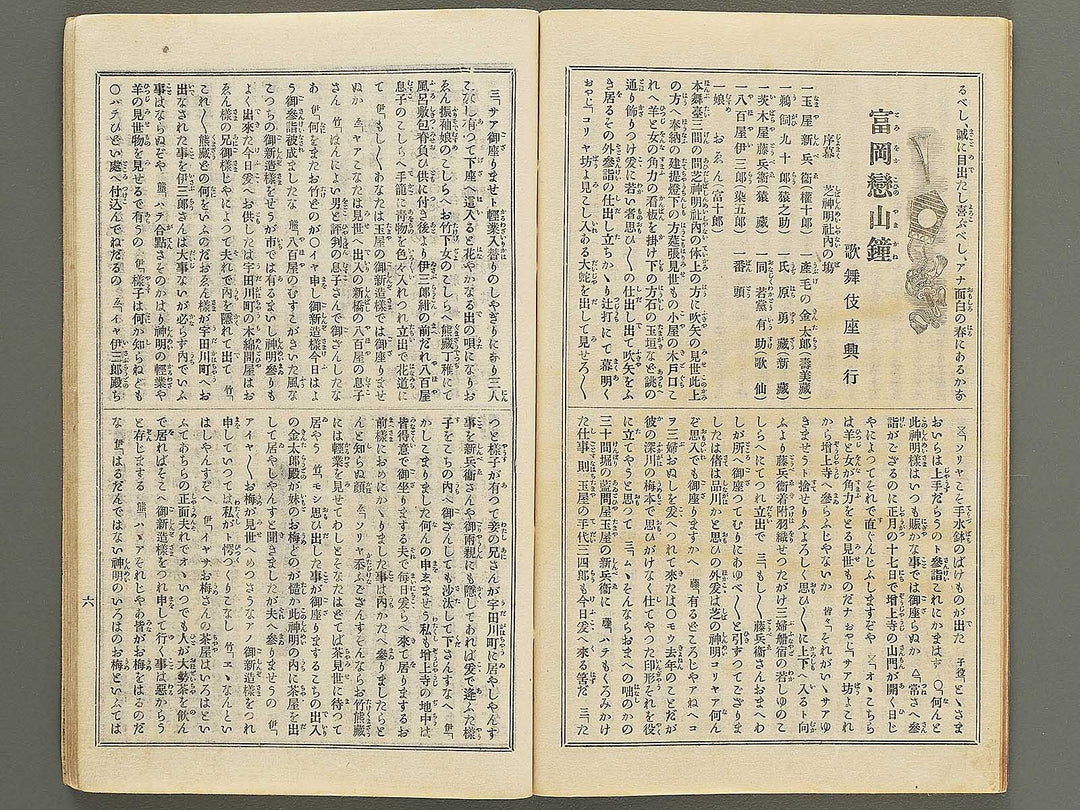 るべし、誠に目出たし喜ぶべし、アナ面白の春にあるかな
富岡戀山鐘
歌舞伎座興行
序幕 芝神明社內の場
一玉屋新兵衞(權十郞)
一產毛の金太郞(壽美藏)
一鵜飼九十郞(猿之助)
一氏原勇藏(新藏)
一茨木屋藤兵衞(猿藏)
一同若黨有助(歌仙)
一八百屋伊三郞(染五郞)
一番頭
一娘 おゑん(富十郞)
本舞臺三間の間芝神明社內の体上の方吹矢の見世此上
の方奉納の建提燈下の方葭張見世もの小屋の木戶口こ
れへ羊と女の角力の看板を掛け下の方石の玉垣など誂の
通り飾りつけ爰に若い者思ひ〱の仕出し出て吹矢をふ
き居るその外參詣の仕出し立ちかゝり辻打にて幕明く
おやじ「コリヤ坊よ見こし入ある大蛇を出して見せろ〱
「ソリヤこそ手水鉢のばけものが出た 子役「とゝさま
おいらは上手だらうのト參詣これにかまはず ○「何んと
此神明樣はいつも賑かな事では御座らぬか △「常さへ參
詣がござるのに正月の十七日で增上寺の山門が開く日じ
やによつてそれで直ぐんじふしますぞや 「オヽこちら
は羊と女が角力をとる見世ものだナ おやじ「サア坊よこれ
から增上寺へ參らふじやないか 皆々「それがいゝサアゆ
きませうト捨せりふよろしく思ひ〱に上下へ入るト向
ふより藤兵衞着附羽織せつたがけ三婦船宿の若し ゆのこ
しらへにてつれ立出で 三「もし〱藤兵衞さんおまへわ
しが所へ御座つてむりにあゆべ〱と引ずつてござりま
したは偖は品川かと思ひの外爰は芝の神明コリヤ何ん
ぞ思入でも御座りますか 藤「有る〱ところじやアねへコ
ヲ三婦おぬしを爰へつれて來たは○モウ去年のことだが
彼の深川の梅本で思ひがけなく仕てやつた印形それを役
に立てやうと思つて 三「ムヽそんならおまへの咄のかの
三十間堀の藍問屋玉屋の新兵衞に 藤「ハテもくろみかけ
た仕事 則ち玉屋の手代三四郞も今日爰へ來る筈だ 三「た
三「サア御座りませト輕業入替りのしやぎりになり三人
こなし有つて下座へ這入ると花やかなる出の唄になりお
ゑん振袖娘のこしらへお竹下女のこしらへ熊藏丁稚にて
風呂敷包脊負ひ供に付き後より伊三郞紺の前だれ八百屋
息子のこしらへ手籠に靑物を色々入れつれ立出で花道に
て 伊「もし〱あなたは玉屋の御新造樣では御座りませ
ぬか ゑ「ヤアこなたは見世へ出入の新橋の八百屋の息子
さん 竹「ほんによい男と評判の息子さんで御さんしたな
あ 伊「何をまたお竹どのが○イヤ申し御新造樣今日はよ
う御參詣被成ましたな 熊「八百屋のむすこがきいた風な
こつちの御新造樣をせうが市では有るまいし神明參りも
よく出來た今日爰へお供したは宇田川町の木綿問屋はお
ゑん樣の兄御樣じやによつて夫れで內を隱れて出て 竹「
これ〱熊藏どの何をいふのだおゑん樣が宇田川町へお
出なされた事を伊三郞さんは大事ないが必らず內でいふ
事はならぬぞや 熊「ハテ合點さそのかはり神明の輕業や
羊の見世物を見せるで有うの 伊「樣子は何か知らねども
○ハテひどい處へ仕込んでねだるの ゑ「イヤ伊三郞殿ち
つと樣子が有つて妾の兄さんが宇田川町に居やしやんす
事を新兵衞さんや御兩親にも隱してあれば爰で逢ふた樣
子をこちの內へ御さんしても沙汰して下さんすなへ 伊「
かしこまりました何んの申ませう私も增上寺の地中は
皆得意で御坐りまする夫で每日爰らへ來て居りまするお
前樣におめにかゝりました事は內かたへ參りましたらと
んと知らぬ顏 ゑ「ソリヤ忝ふござんすそんならお竹熊藏
には輕業を見せてわしとそなたはどれぞ茶見世に待つて
居やう 竹「モシ思ひ出した事が御座りまするこちの出入
の金太郞殿が妹のお梅どのが慥か此神明の內に茶屋を出
して居やしやんすと聞きましたが夫へ參りませうの 伊「
アイヤ〱お梅が見世へめつさうなアノ御新造樣をつれ
申していつては私がト惘つくりこなし 竹「エヽなんとい
はしやんすぞへ 伊「イヤサお梅さんの茶屋はいろはとい
ふてあちらの正面夫れでオヽいつでも人が大勢茶を飮ん
で居ればそこへ御新造樣をつれ申して行く事は惡からう
と存じまする 熊「ハヽアそれじやあの樣がお梅をはるのだ
な 伊「はるだんではない神明のいろはのお梅といふては
六